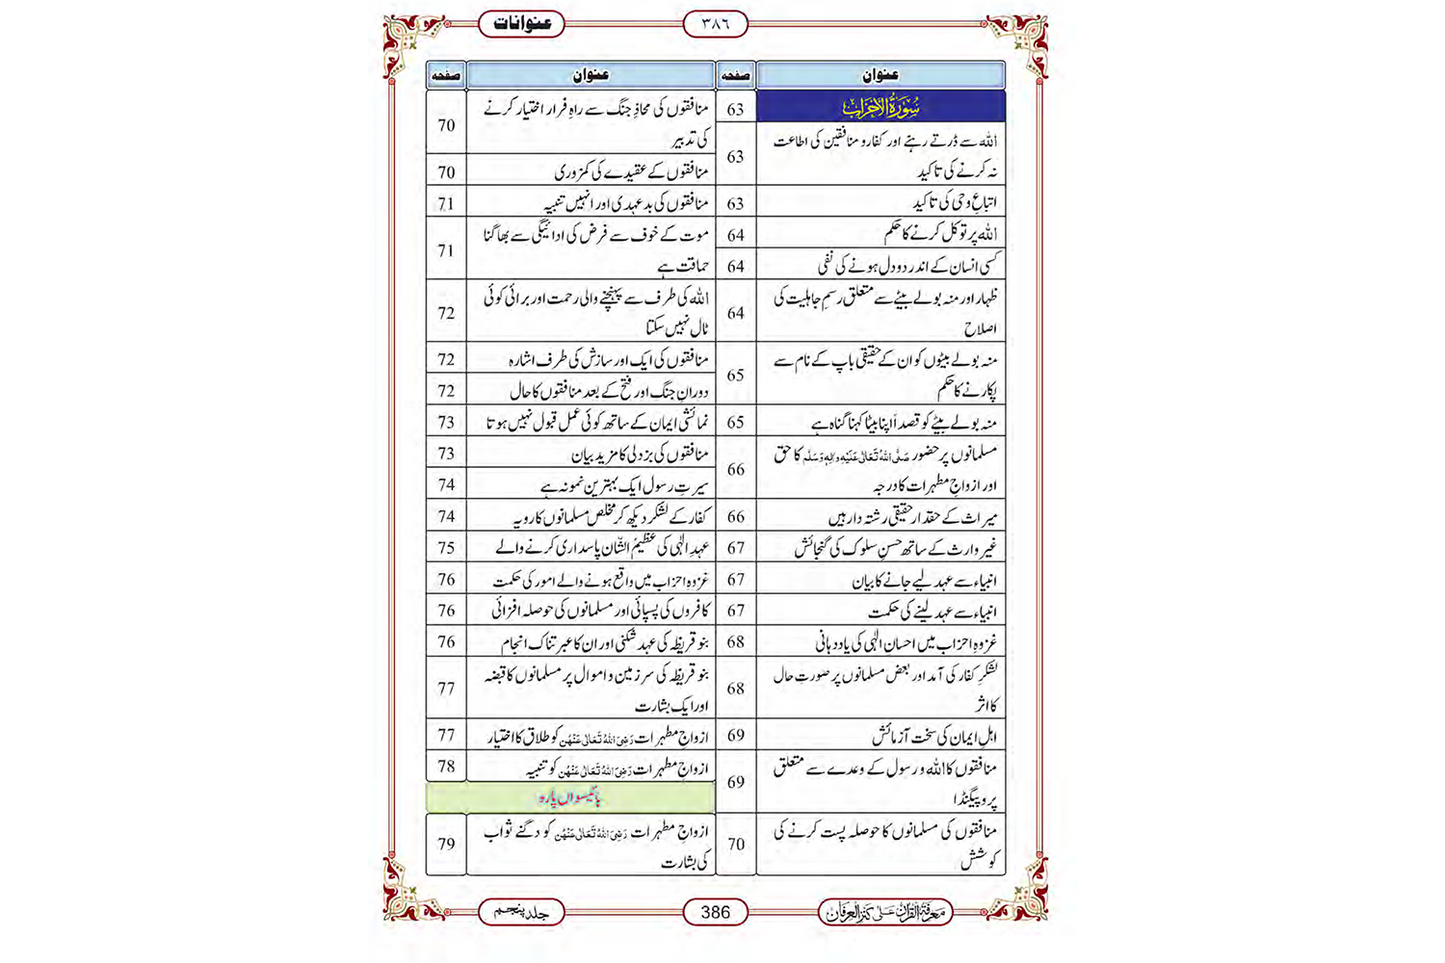 عنوانات
۳۸۶
عنوان صفحہ
سُوْرَۃُ الْاَحْزَاب 63
اللہ سے ڈرتے رہنے اور کفار و منافقین کی اطاعت
نہ کرنے کی تاکید 63
اتباعِ وحی کی تاکید 63
اللہ پر توکل کرنے کا حکم 64
کسی انسان کے اندر دو دل ہونے کی نفی 64
ظہار اور منہ بولے بیٹے سے متعلق رسمِ جاہلیت کی
اصلاح 64
منہ بولے بیٹوں کو ان کے حقیقی باپ کے نام سے
پکارنے کا حکم 65
منہ بولے بیٹے کو قصداً اپنا بیٹا کہنا گناہ ہے 65
مسلمانوں پر حضور صَلَّی اللہُ تَعَالٰی عَلَیْہِ وَاٰلِہٖ وَسَلَّم کا حق
اور ازواجِ مطہرات کا درجہ 66
میراث کے حقدار حقیقی رشتہ دار ہیں 66
غیر وارث کے ساتھ حسنِ سلوک کی گنجائش 67
انبیاء سے عہد لیے جانے کا بیان 67
انبیاء سے عہد لینے کی حکمت 67
غزوہِ احزاب میں احسانِ الٰہی کی یاددہانی 68
لشکرِ کفار کی آمد اور بعض مسلمانوں پر صورتِ حال
کا اثر 68
اہلِ ایمان کی سخت آزمائش 69
منافقوں کا اللہ و رسول کے وعدے سے متعلق
پروپیگنڈا 69
منافقوں کی مسلمانوں کا حوصلہ پست کرنے کی
کوشش 70
عنوان صفحہ
منافقوں کی محاذِ جنگ سے راہِ فرار اختیار کرنے
کی تدبیر 70
منافقوں کے عقیدے کی کمزوری 70
منافقوں کی بدعہدی اور انہیں تنبیہ 71
موت کے خوف سے فرض کی ادائیگی سے بھاگنا
حماقت ہے 71
اللہ کی طرف سے پہنچنے والی رحمت اور برائی کوئی
ٹال نہیں سکتا 72
منافقوں کی ایک اور سازش کی طرف اشارہ 72
دورانِ جنگ اور فتح کے بعد منافقوں کا حال 72
نمائشی ایمان کے ساتھ کوئی عمل قبول نہیں ہوتا 73
منافقوں کی بزدلی کا مزید بیان 73
سیرتِ رسول ایک بہترین نمونہ ہے 74
کفار کے لشکر دیکھ کر مخلص مسلمانوں کا رویہ 74
عہدِ الٰہی کی عظیمُ الشّان پاسداری کرنے والے 75
غزوہِ احزاب میں واقع ہونے والے امور کی حکمت 76
کافروں کی پسپائی اور مسلمانوں کی حوصلہ افزائی 76
بنو قریظہ کی عہد شکنی اور ان کا عبرتناک انجام 76
بنو قریظہ کی سرزمین و اموال پر مسلمانوں کا قبضہ
اور ایک بشارت 77
ازواجِ مطہرات رَضِیَ اللہُ تَعَالٰی عَنْہُن کو طلاق کا اختیار 77
ازواجِ مطہرات رَضِیَ اللہُ تَعَالٰی عَنْہُن کو تنبیہ 78
بائیسواں پارہ
ازواجِ مطہرات رَضِیَ اللہُ تَعَالٰی عَنْہُن کو دگنے ثواب
کی بشارت 79
مَعْرِفَۃُ الْقُرْاٰن عَلٰی کَنْزُ الْعِرْفَان
386
جلد پنجم